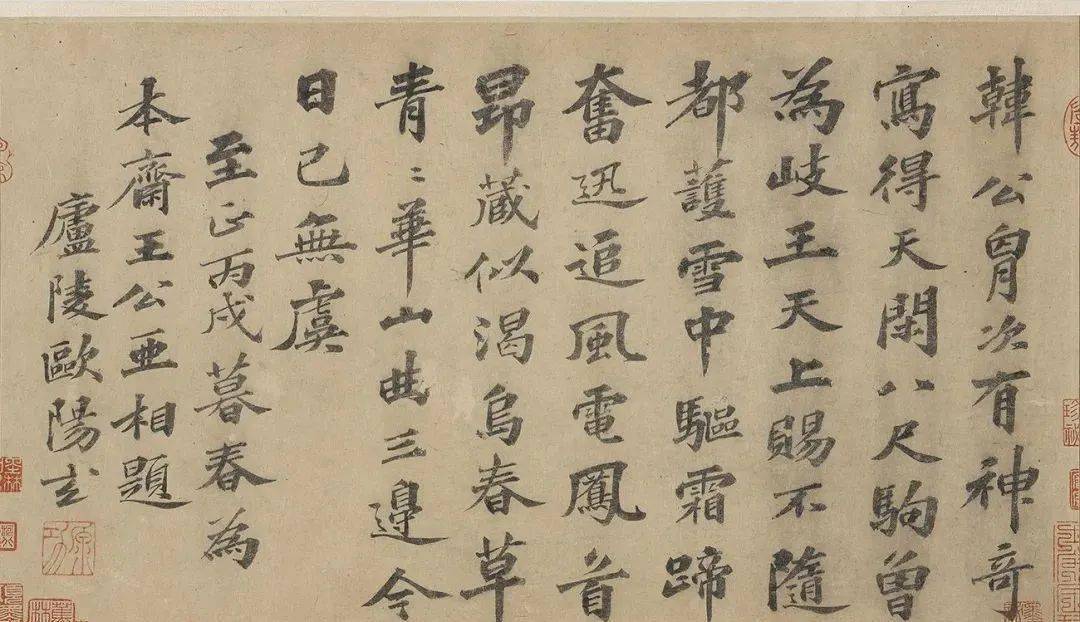 韓公胷次有神奇
寫得天閑八尺駒曽
為岐王天上賜不隨
都護雪中驅霜蹄
奮迅追風電鳳首
昂藏似渴烏春草
青〻華山曲三邉今
日已無虞
至正丙戌暮春為
本齋王公亞相題
廬陵歐陽玄